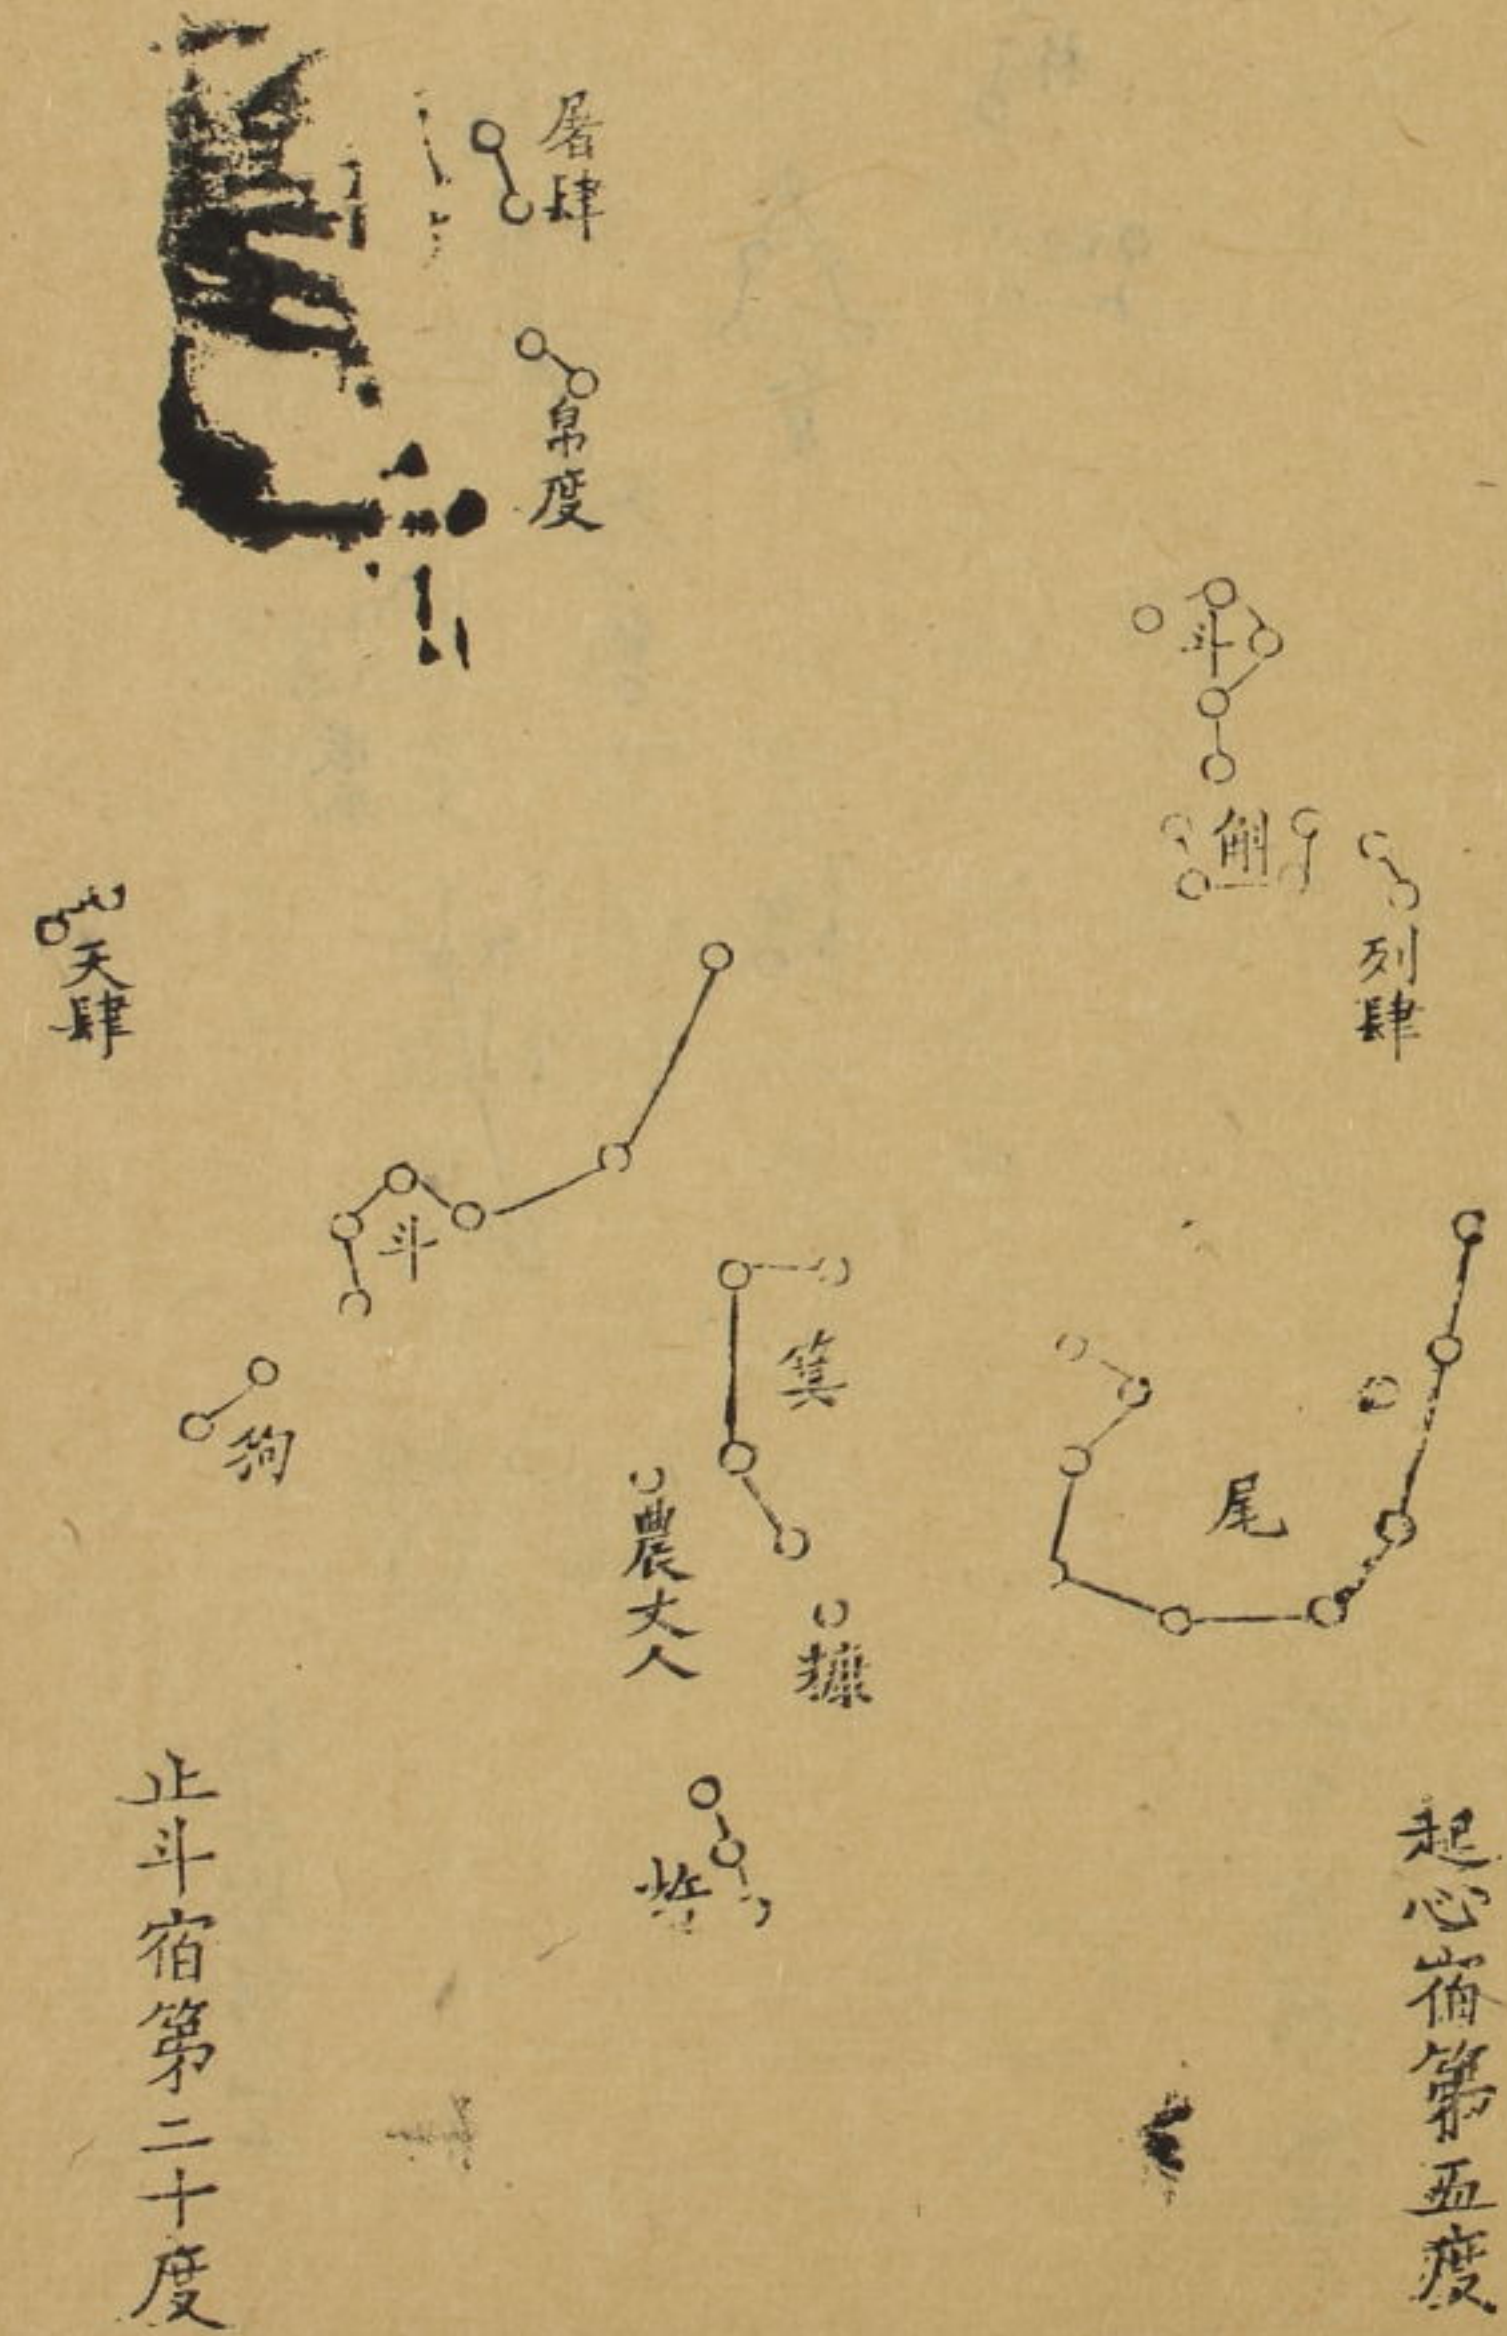 起心宿第五度
列肆
斛
斗
尾
箕
糠
農丈人
杵
屠肆
帛度
斗
狗
天肆
止斗宿第二十度